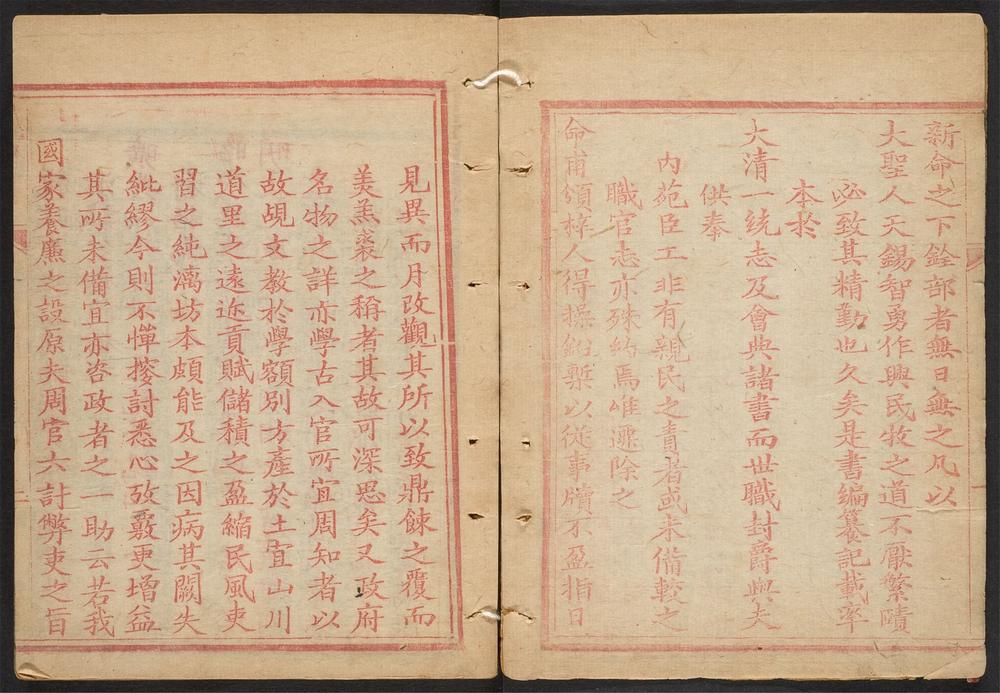 新命之下銓部者無日無之凡以
大聖人天錫智勇作興民牧之道不厭繁賾
必致其精勤也久矣是書编纂記載率
本於
大清一统志及會典諸書而世職封爵與夫
供奉
内苑臣工非有親民之責者或未俻較之
職官志亦殊約焉唯遷除之
命甫頒梓人得操鉛槧以従事牘不盈指日
見異而月改觀其所以致鼎餗之覆而
美羔裘之稱者其故可深思矣又政府
名物之詳亦學古入官所宜周知者以
故覘文教於學額别方產於土宜山川
道里之遠途貢賦儲積之盈縮民風吏
習之純漓坊本頗能及之因病其闕失
紕繆今則不憚搜討悉心攷覈更增益
其所未備宜亦咨政者之一助云若我
國家養廉之設原夫周官六計弊吏之旨